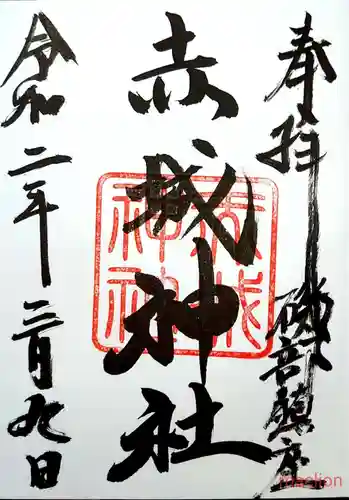 奉拝
磯部鎮座
赤城神社
赤城神社
令和二年三月九日
maclion